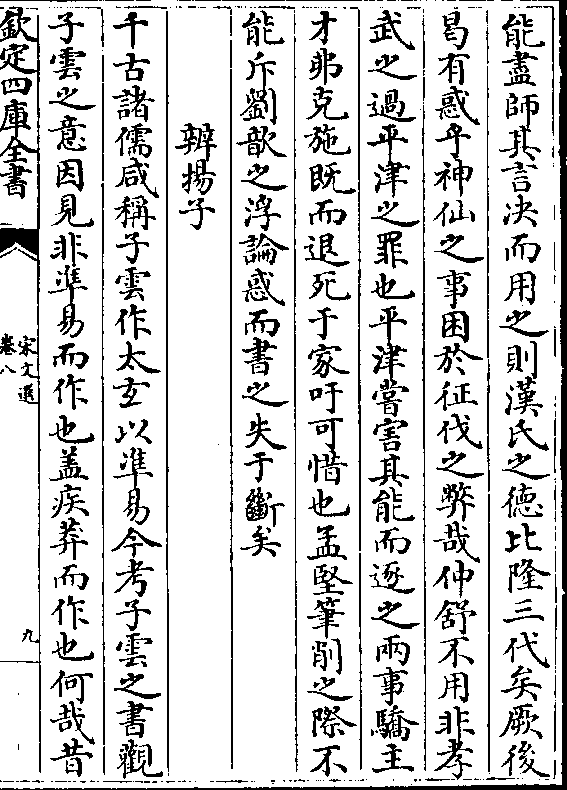 能盡師其言決而用之則漢氏之德比隆三代矣厥後
曷有惑乎神仙之事困於征伐之弊哉仲舒不用非孝
武之過平津之罪也平津嘗害其能而逐之兩事驕主
才弗克施既而退死于家吁可惜也孟堅筆削之際不
能斥劉歆之浮論惑而書之失于斷矣
辨揚子
千古諸儒咸稱子雲作太玄以準易今考子雲之書觀
子雲之意因見非準易而作也蓋疾莽而作也何哉昔
欽定四庫全書
宋文選
卷八
九